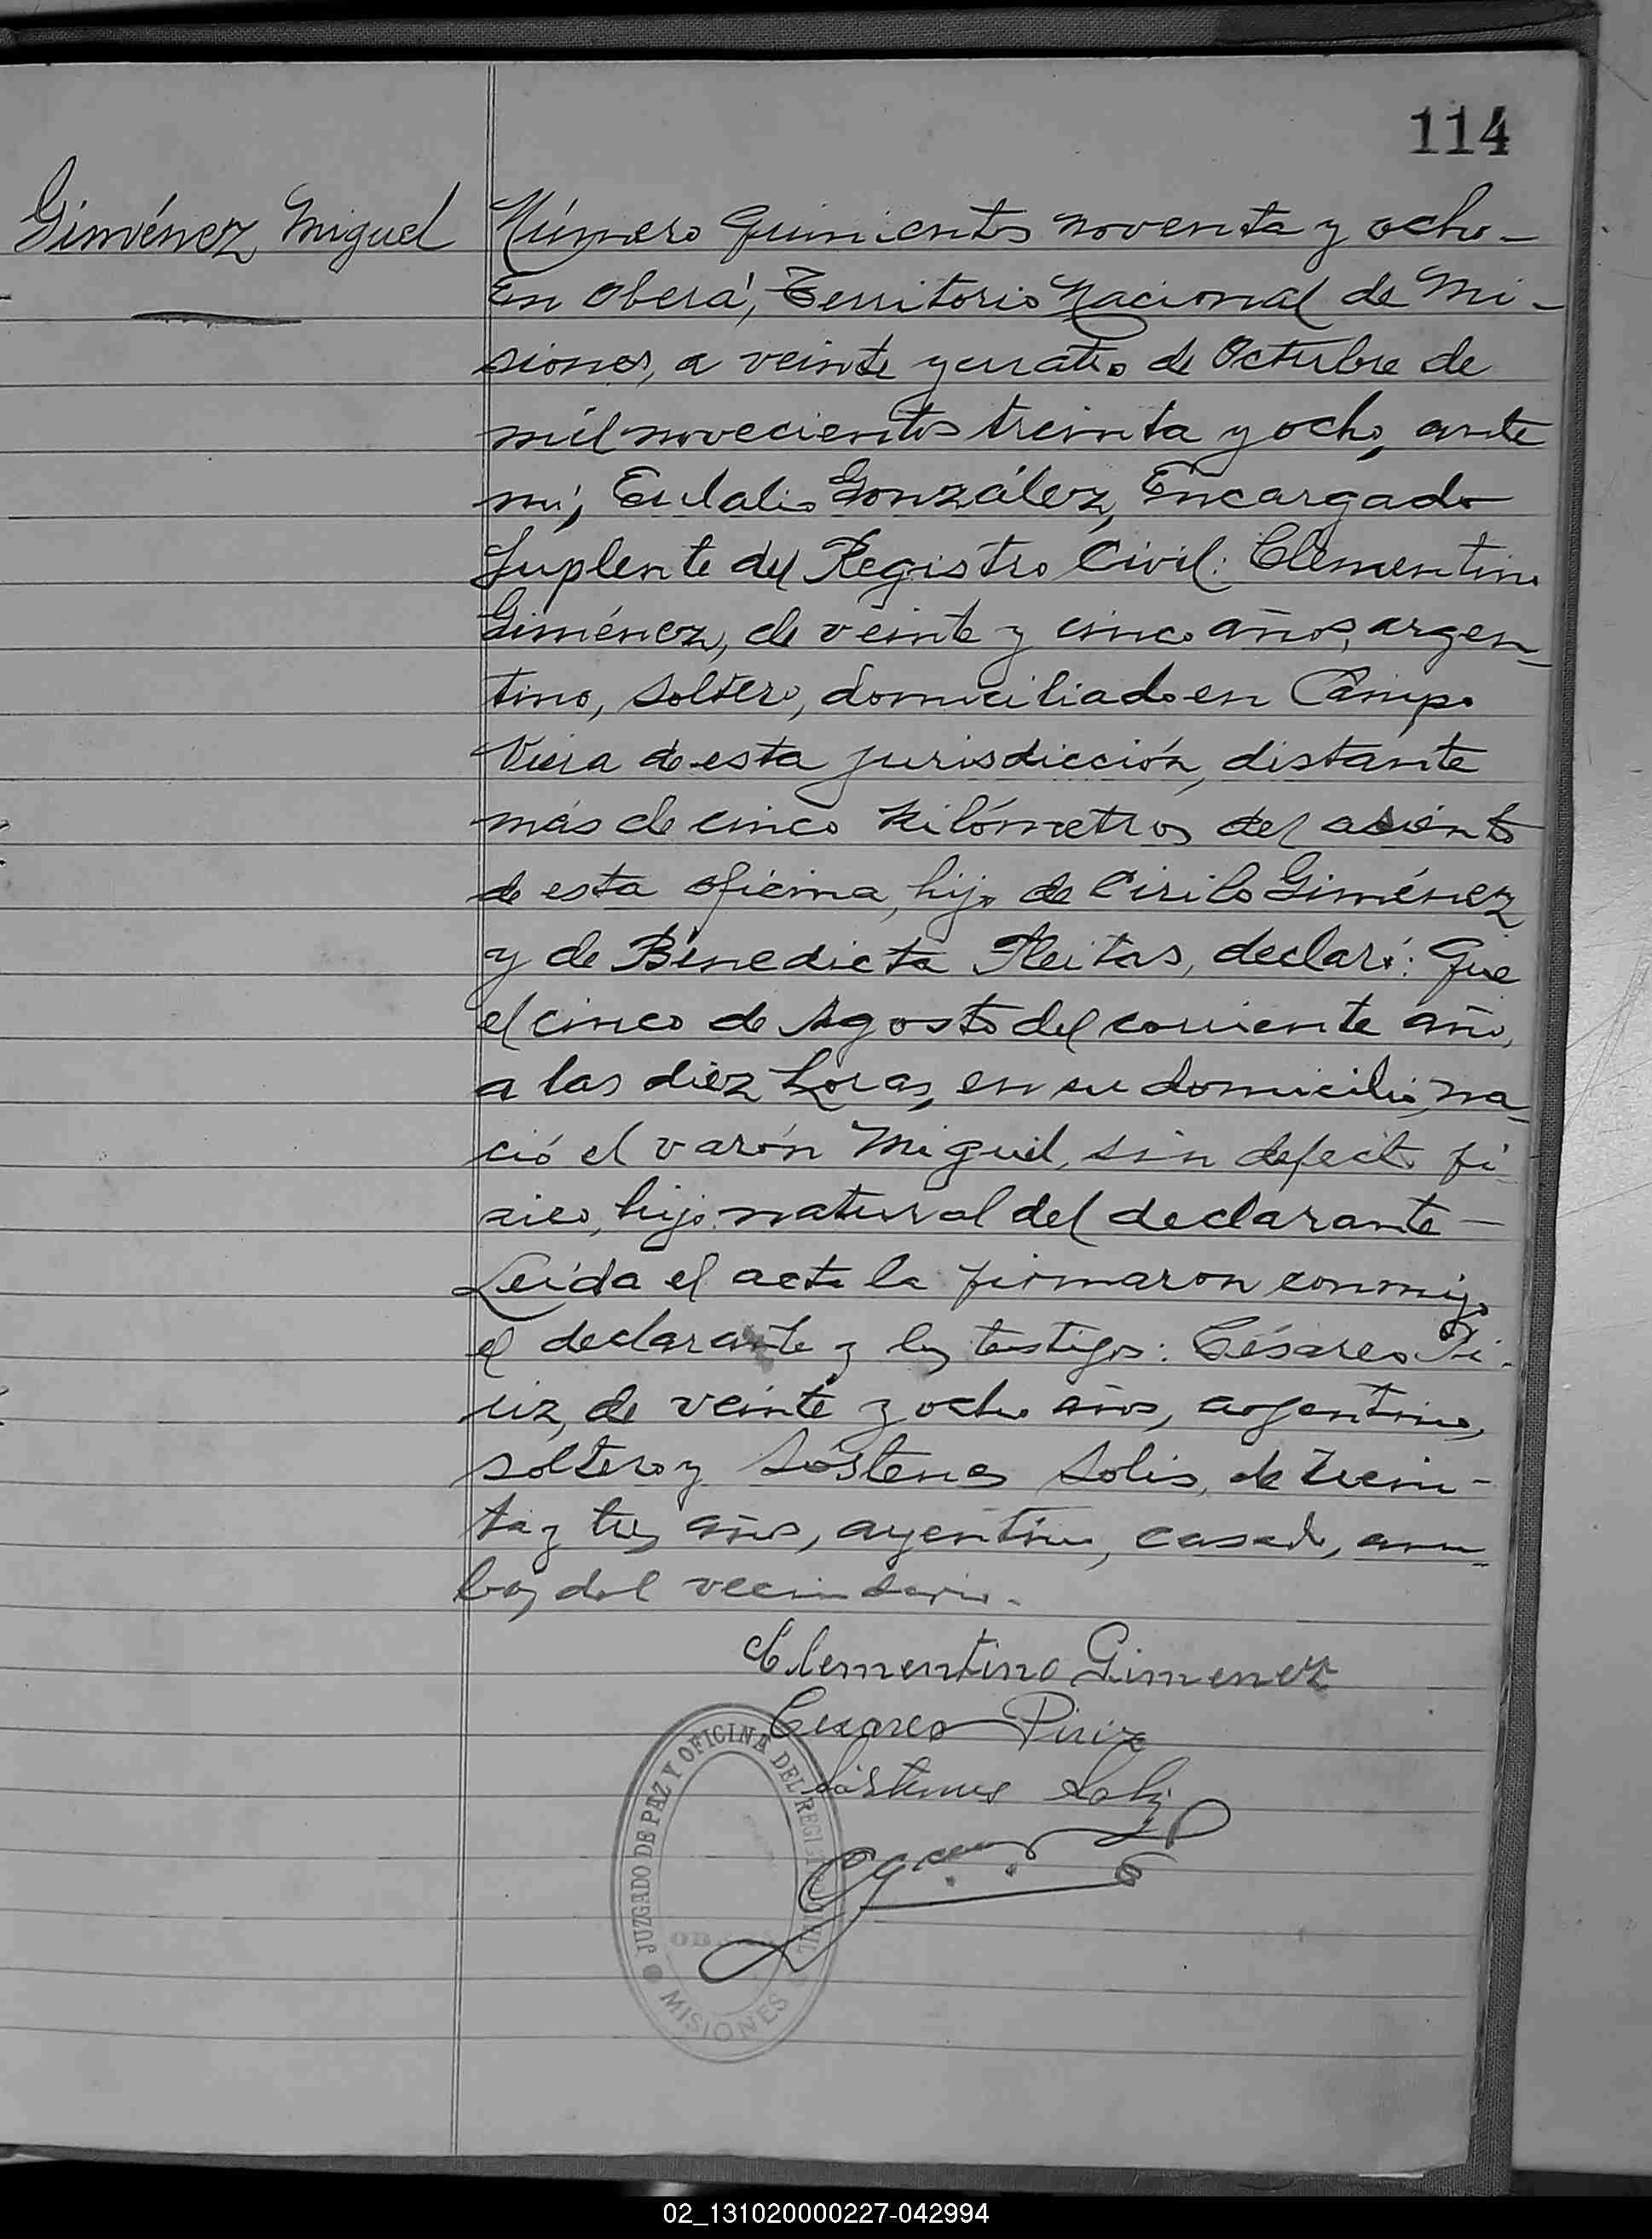 114
Giménez, Miguel
Número quinientos noventa y ocho—
En Oberá, Territorio Nacional de Mi-
siones, a veinte y cuatro de Octubre de
mil novecientos treinta y ocho, ante
mí, Eulalio González, Encargado
Suplente del Registro Civil: Clementino
Giménez, de veinte y cinco años, argen-
tino, soltero, domiciliado en Campo
Viera de esta jurisdicción, distante
más de cinco kilómetros del asiento
de esta oficina, hijo de Cirilo Giménez
y de Benedicta Fleitas, declaró: Que
el cinco de Agosto del corriente año,
a las diez horas, en su domicilio, na-
ció el varón Miguel, sin defecto fí-
sico, hijo natural del declarante—
Leída el acta la firmaron conmigo
el declarante y los testigos: Césareo Pi-
riz, de veinte y ocho años, argentino,
soltero y Sóstenes Solis, de trein-
ta y tres años, argentino, casado, am-
bos del vecindario.
Clementino Gimenez
Cesareo Piriz
Sóstenes Solis
JUZGADO DE PAZ Y OFICINA DEL REGISTRO CIVIL
OBERÁ
MISIONES
02_131020000227-042994